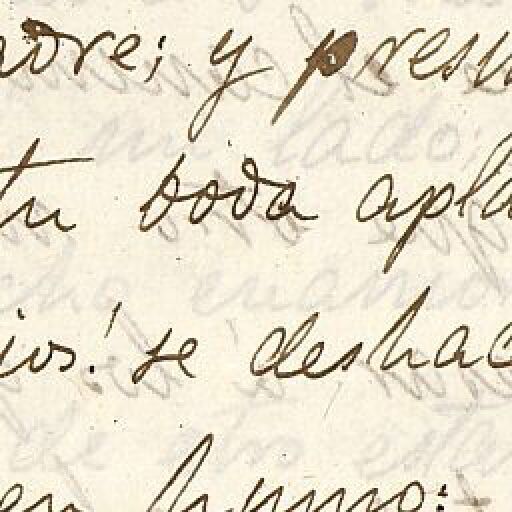 adre; y presu
tu boda apla
ios! se deshac
en humo: